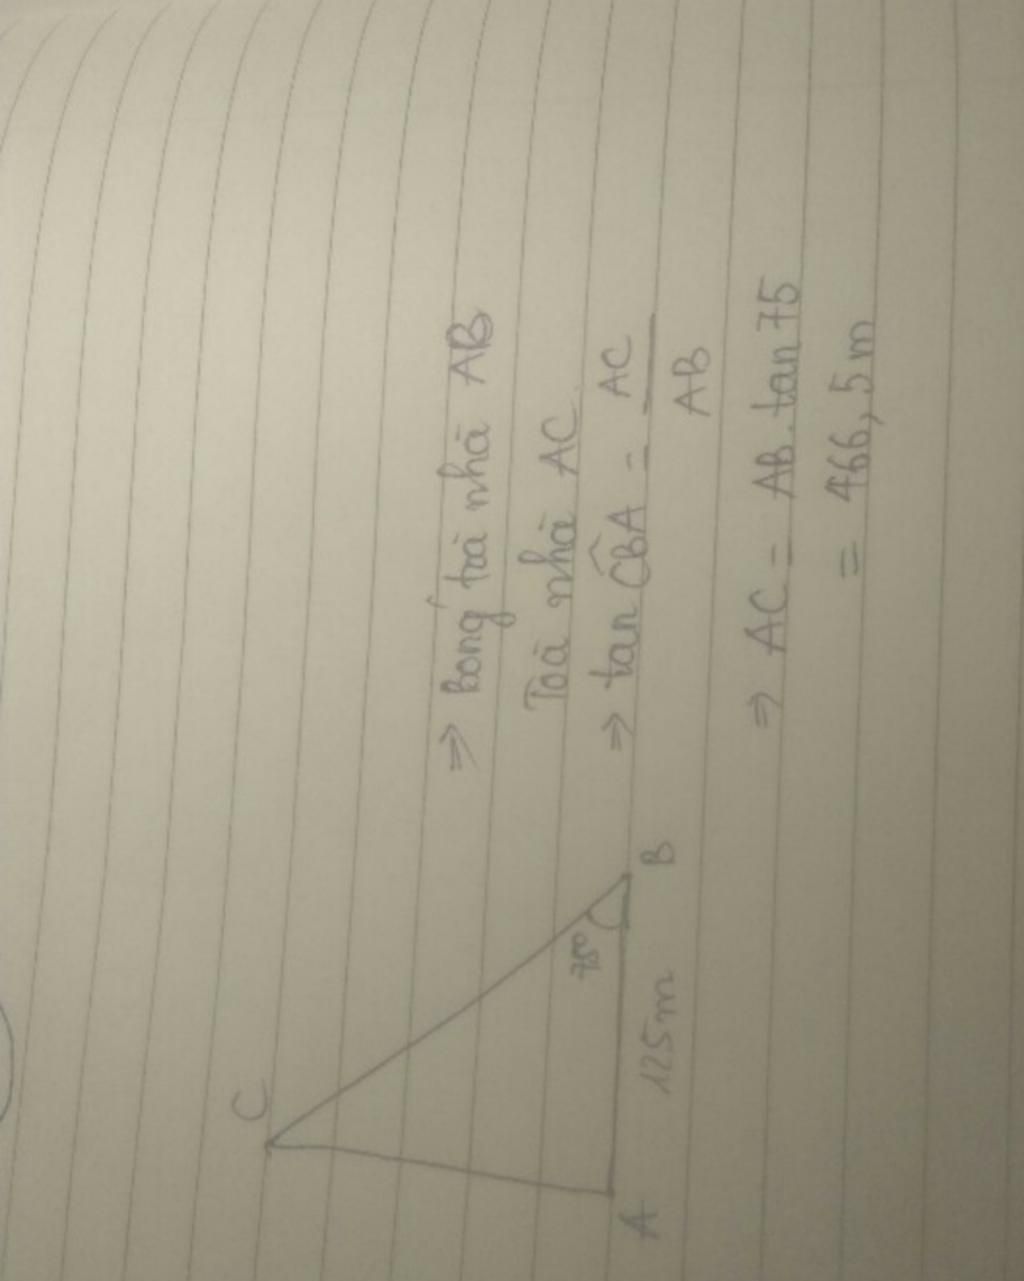 C
75°
A
125m
B
⇒ Bóng toà nhà AB
Toà nhà AC
⇒ tan CBA = AC
AB
⇒ AC = AB. tan 75
= 466,5m